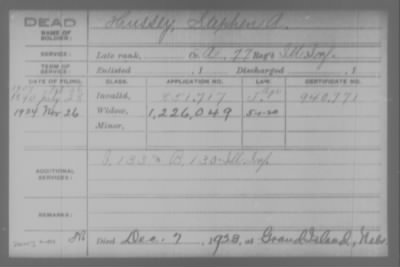 DEAD
NAME OF SOLDIER:
Hussey, Stephen A.
SERVICE:
Late rank, Co. A, 77 Reg't Ill. Inf.
TERM OF SERVICE:
Enlisted , 1 Discharged , 1
DATE OF FILING. CLASS. APPLICATION NO. LAW. CERTIFICATE NO.
1890 July 28 Invalid, 851,717 940,771
1934 Nov. 26 Widow, 1,226,049
Minor,
ADDITIONAL SERVICES:
133 & 130 Ill. Inf
REMARKS:
Died Dec. 7, 1933, at Grand Island, Nebr.